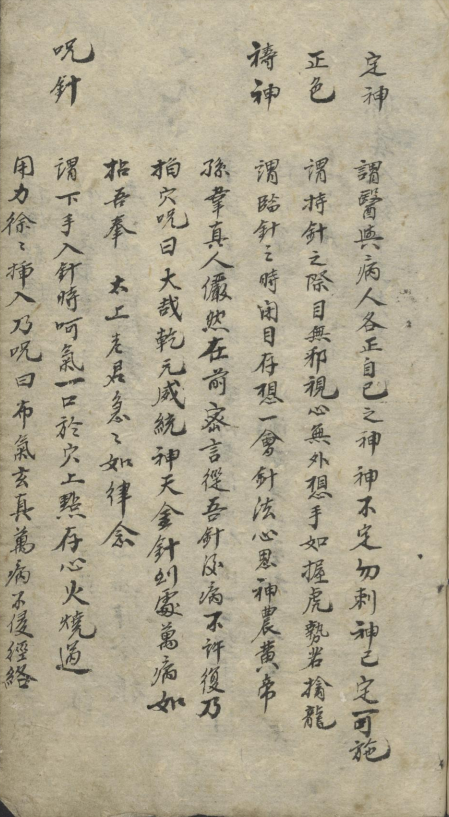 定神
謂醫與病人各正自己之神神不定勿刺神已定可施
正色
謂持針之際目無邪視心無外想手如握虎勢若擒龍
禱神
謂臨針之時閉目存想一會針法心思神農黄帝
孫韋真人儼然在前密言從吾針後病不許復乃
拍穴咒曰大哉乾元威統神天金針到處萬病如
拈吾奉 太上老君急〻如律令
咒針
謂下手入針時呵氣一口於穴上默存心火燒過
用力徐〻揷入乃咒曰布氣玄真萬病不侵徑絡